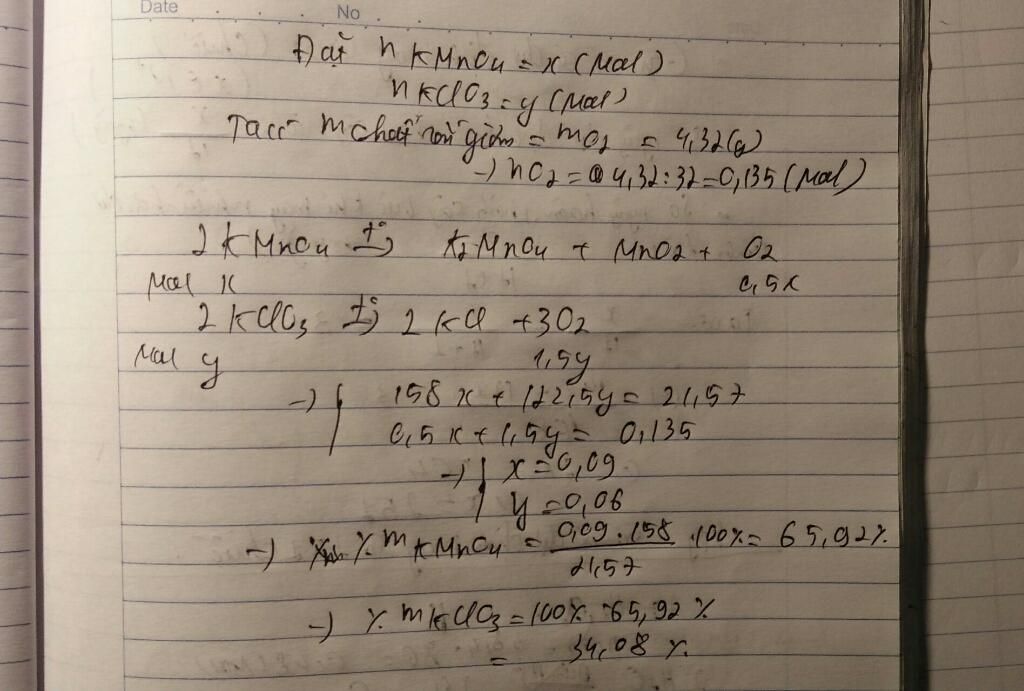 Date No
Đặt n KMnO4 = x (Mol)
n KClO3 = y (Mol)
Ta có m chất rắn giảm = mO2 = 4,32(g)
-> nO2 = 4,32:32=0,135 (Mol)
2 KMnO4 t° -> K2MnO4 + MnO2 + O2
Mol x 0,5x
2 KClO3 t° -> 2 KCl +3O2
Mol y 1,5y
-> 158 x + 122,5y = 21,57
0,5 x + 1,5y = 0,135
-> x = 0,09
y = 0,06
-> % m KMnO4 = 0,09 . 158 / 21,57 .100% = 65,92%
-> % m KClO3 = 100% - 65,92 %
= 34,08 %